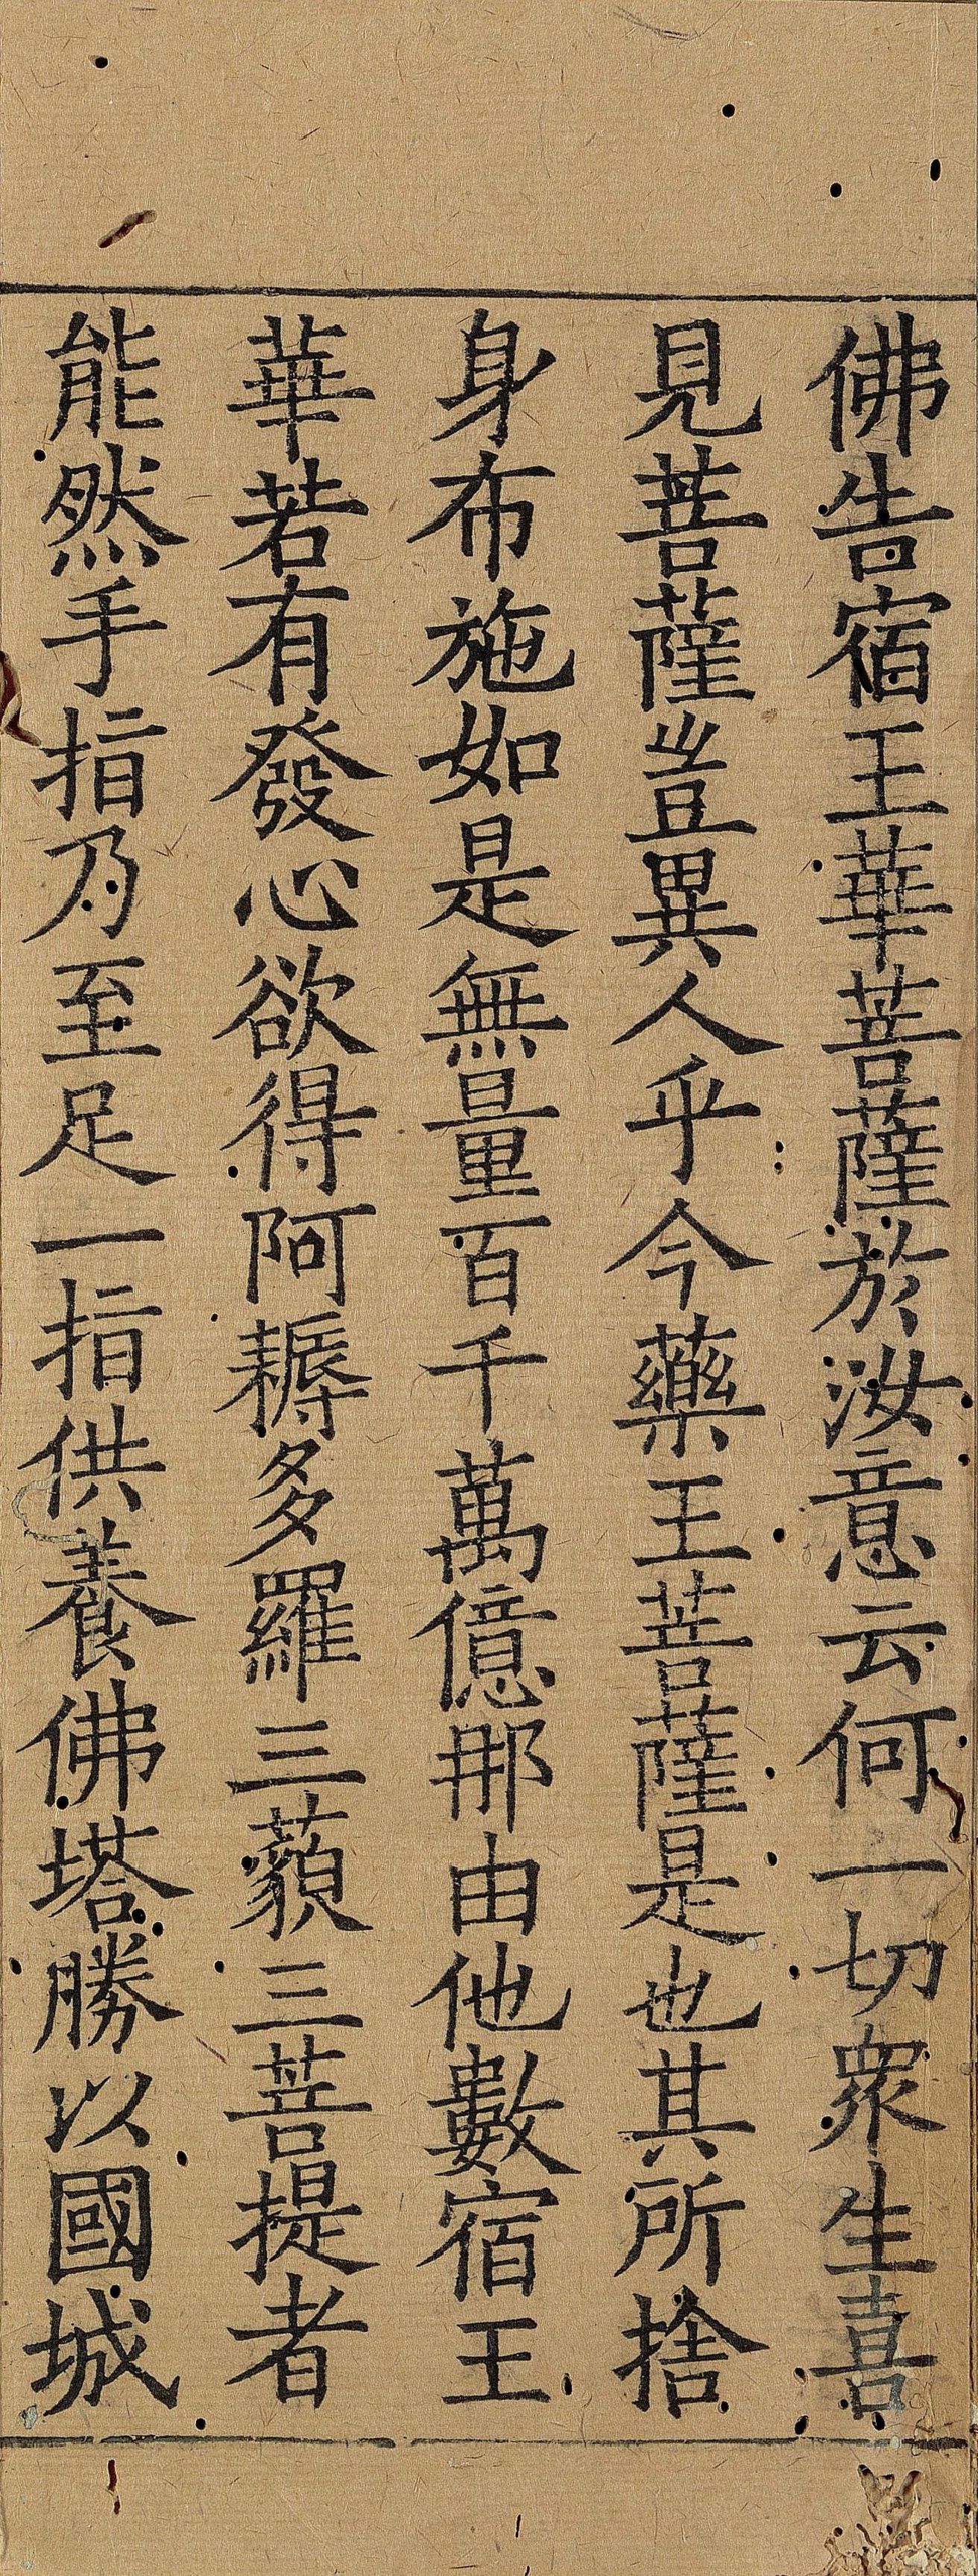 佛告宿王華菩薩於汝意云何一切衆生喜
見菩薩豈異人乎今藥王菩薩是也其所捨
身布施如是無量百千萬億那由他數宿王
華若有發心欲得阿耨多羅三藐三菩提者
能然手指乃至足一指供養佛塔勝以國城